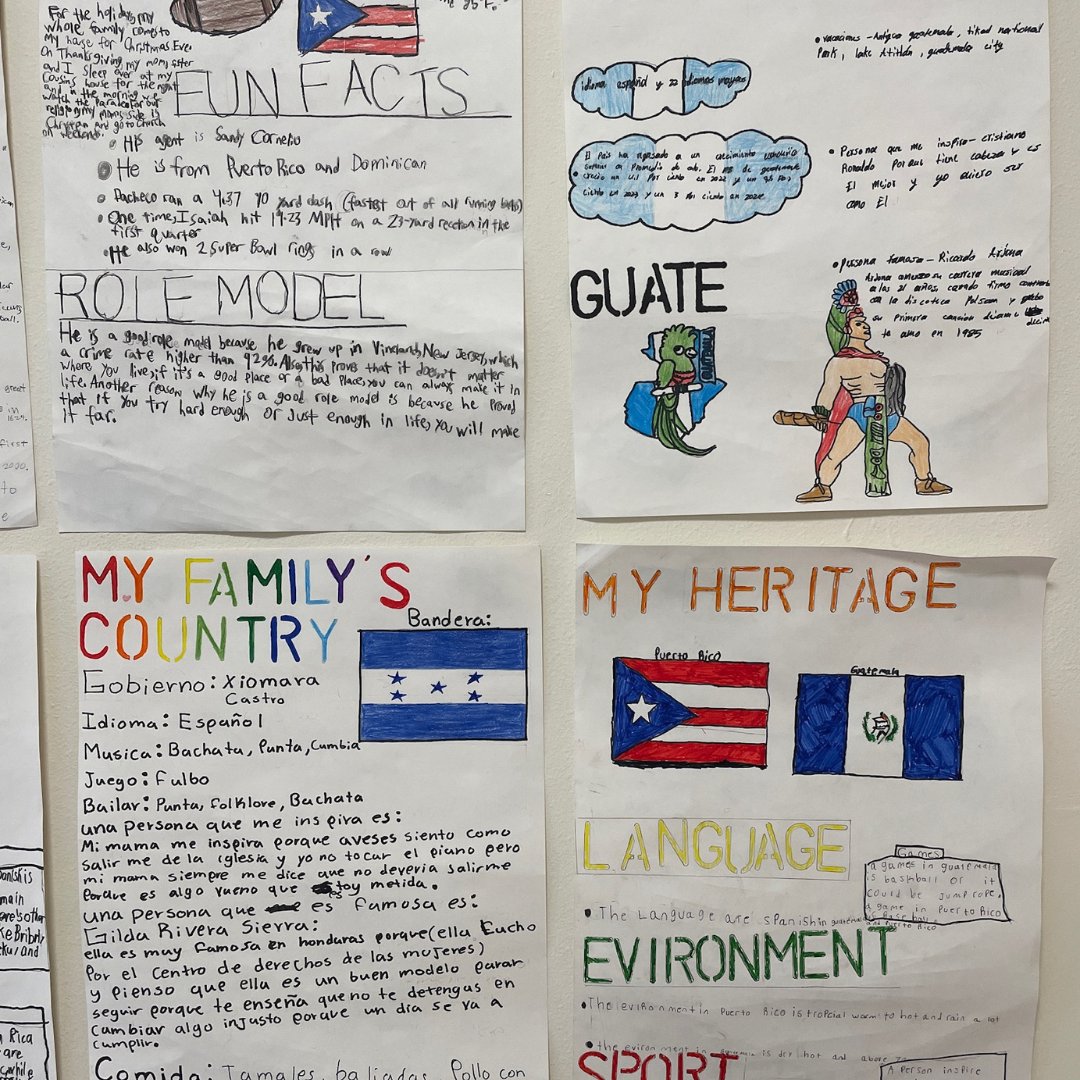 For the holidays my
whole family comes to
my house for Christmas Eve.
On Thanksgiving my mom, sister
and I sleep over at my
cousins house for the night
and in the morning we
watch the Parade. For our
religion my moms side is
and go to church
on weekends.
FUN FACTS
His agent is Sandy Cornelio
He is from Puerto Rico and Dominican
Pacheco ran a 4.37 40 yard dash (fastest out of all running backs)
One time, Isaiah hit 19.23 MPH on a 23-yard reception in the
first quarter
He also won 2 Super Bowl rings in a row
ROLE MODEL
He is a good role model because he grew up in Vineland, New Jersey, which
a crime rate higher than 92%. Also this proves that it doesn't matter
where you live, if it's a good place or a bad place, you can always make it in
life. Another reason why he is a good role model is because he proved
that if you try hard enough or just enough in life, you will make
it far.
vacaciones - Antigua guatemala, tikad national
Park, lake Atitlán, guatemala city
idioma español y 22 idiomas mayas
El País ha regresado a un crecimiento
de guatemala
creció un 4.1 Por ciento en 2022 y un 3.5 Por
ciento en 2023 y un 3 Por ciento en 2024
Persona que me inspiro - cristiano
Ronaldo Porque tiene cabeza y es
El mejor y yo quiero ser
como El
GUATE
GUATEMALA
Persona famosa - Ricardo Arjona
Arjona comenzo su carrera musical
a los 21 años, cuando firmo
con la discoteca y
su Primera cancion
te amo en 1985
MY FAMILY'S
COUNTRY
Bandera:
Gobierno: Xiomara
Castro
Idioma: Español
Musica: Bachata, Punta, Cumbia
Juego: Fulbo
Bailar: Punta, folklore, Bachata
una persona que me inspira es:
Mi mama me inspira porque aveses siento como
salir me de la iglesia y yo no tocar el piano pero
mi mama siempre me dice que no deveria salirme
porque es algo vueno que estoy metida.
una persona que es famosa es:
Gilda Rivera Sierra:
ella es muy famosa en honduras porque (ella Eucho
Por el centro de derechos de las mujeres)
y pienso que ella es un buen modelo parar
seguir porque te enseña que no te detengas en
cambiar algo injusto porque un día se va a
cumplir.
Comida: Tamales, baliadas, Pollo con
MY HERITAGE
Puerto Rico
Guatemala
LANGUAGE
Games
a games in guatemala
is basketball or it
could be jump rope,
a game in Puerto Rico
is Base ball
The Language are spanish in guatemala
and Puerto Rico
EVIRONMENT
The evironment in Puerto Rico is tropcial warm to hot and rain a lot
the eviron ment in is dry hot and above
SPORT
A person inspire